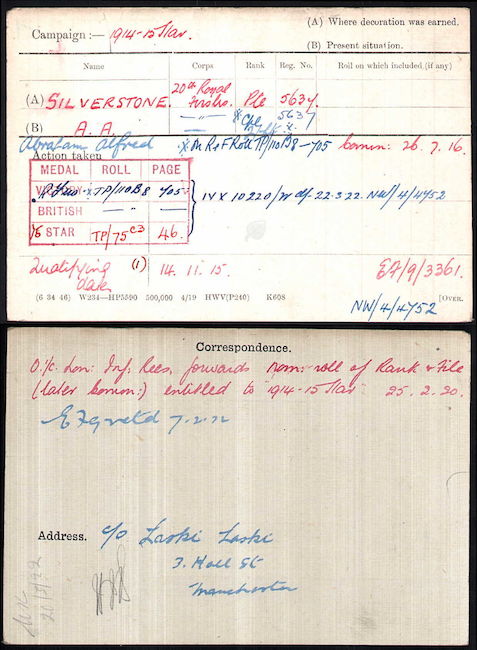 Campaign :— 1914-15 Star.
(A) Where decoration was earned.
(B) Present situation.
Name Corps Rank Reg. No. Roll on which included (if any)
(A) SILVERSTONE. 20th Royal Fusrs. Pte 5634
(B) A. A. —"— 5637
Abraham Alfred TP/110B8 —705 Comm: 26.7.16
Action taken
MEDAL ROLL PAGE
VICTORY TP/110B8 705
BRITISH —"—
15 STAR TP/75C3 46.
IV X 10220/ 22.3.22. NW/4/4752
Qualifying date (1) 14.11.15. EF/9/3361.
(6 34 46) W234—HP5590 500,000 4/19 HWV(P240) K608 [OVER.
NW/4/4752
Correspondence.
O.i/c. Lon: Inf. Recs. forwards nom: roll of Rank & File
(later comm:) entitled to 1914-15 Star 25.2.20.
7.2.22
Address. c/o Laski Laski
3. Hall St
Manchester